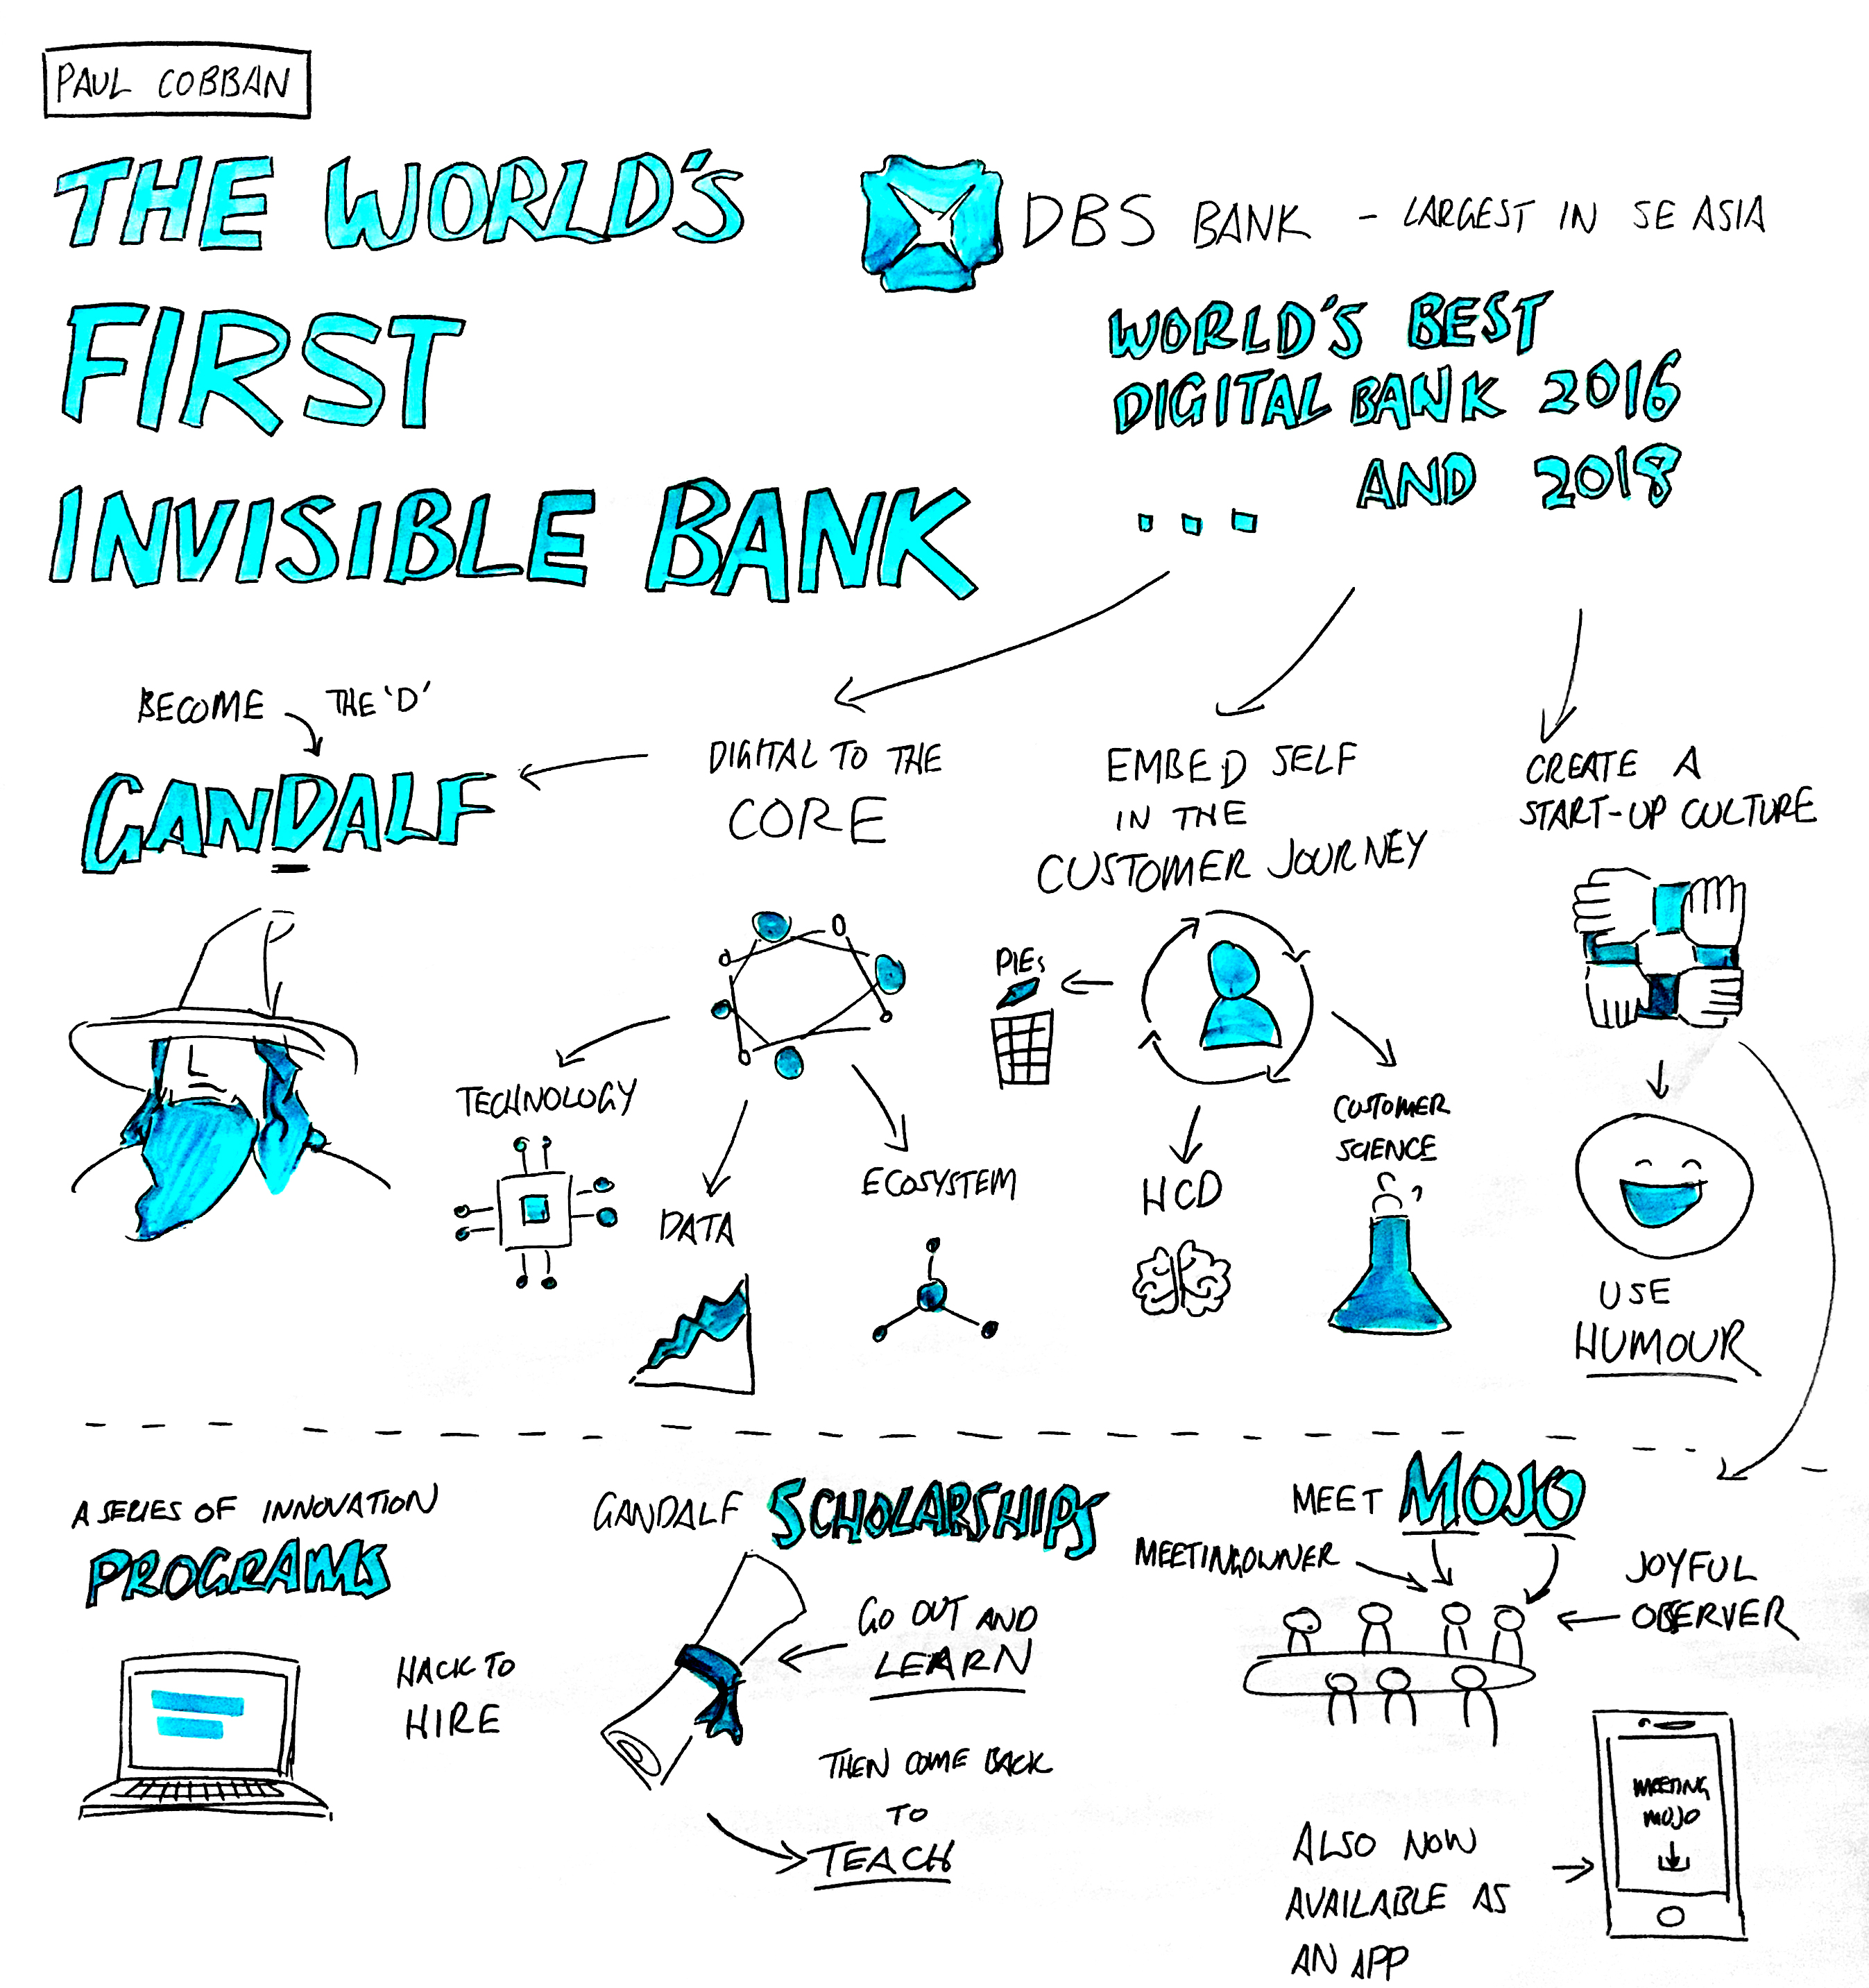 PAUL COBBAN
THE WORLD'S
FIRST
INVISIBLE BANK
DBS BANK - LARGEST IN SE ASIA
WORLD'S BEST
DIGITAL BANK 2016
AND 2018
...
BECOME THE 'D'
GANDALF
DIGITAL TO THE
CORE
TECHNOLOGY
DATA
ECOSYSTEM
EMBED SELF
IN THE
CUSTOMER JOURNEY
PIEs
HCD
CUSTOMER
SCIENCE
CREATE A
START-UP CULTURE
USE
HUMOUR
A SERIES OF INNOVATION
PROGRAMS
HACK TO
HIRE
GANDALF SCHOLARSHIPS
GO OUT AND
LEARN
THEN COME BACK
TO
TEACH
MEET MOJO
MEETING OWNER
JOYFUL
OBSERVER
ALSO NOW
AVAILABLE AS
AN APP
MEETING
MOJO